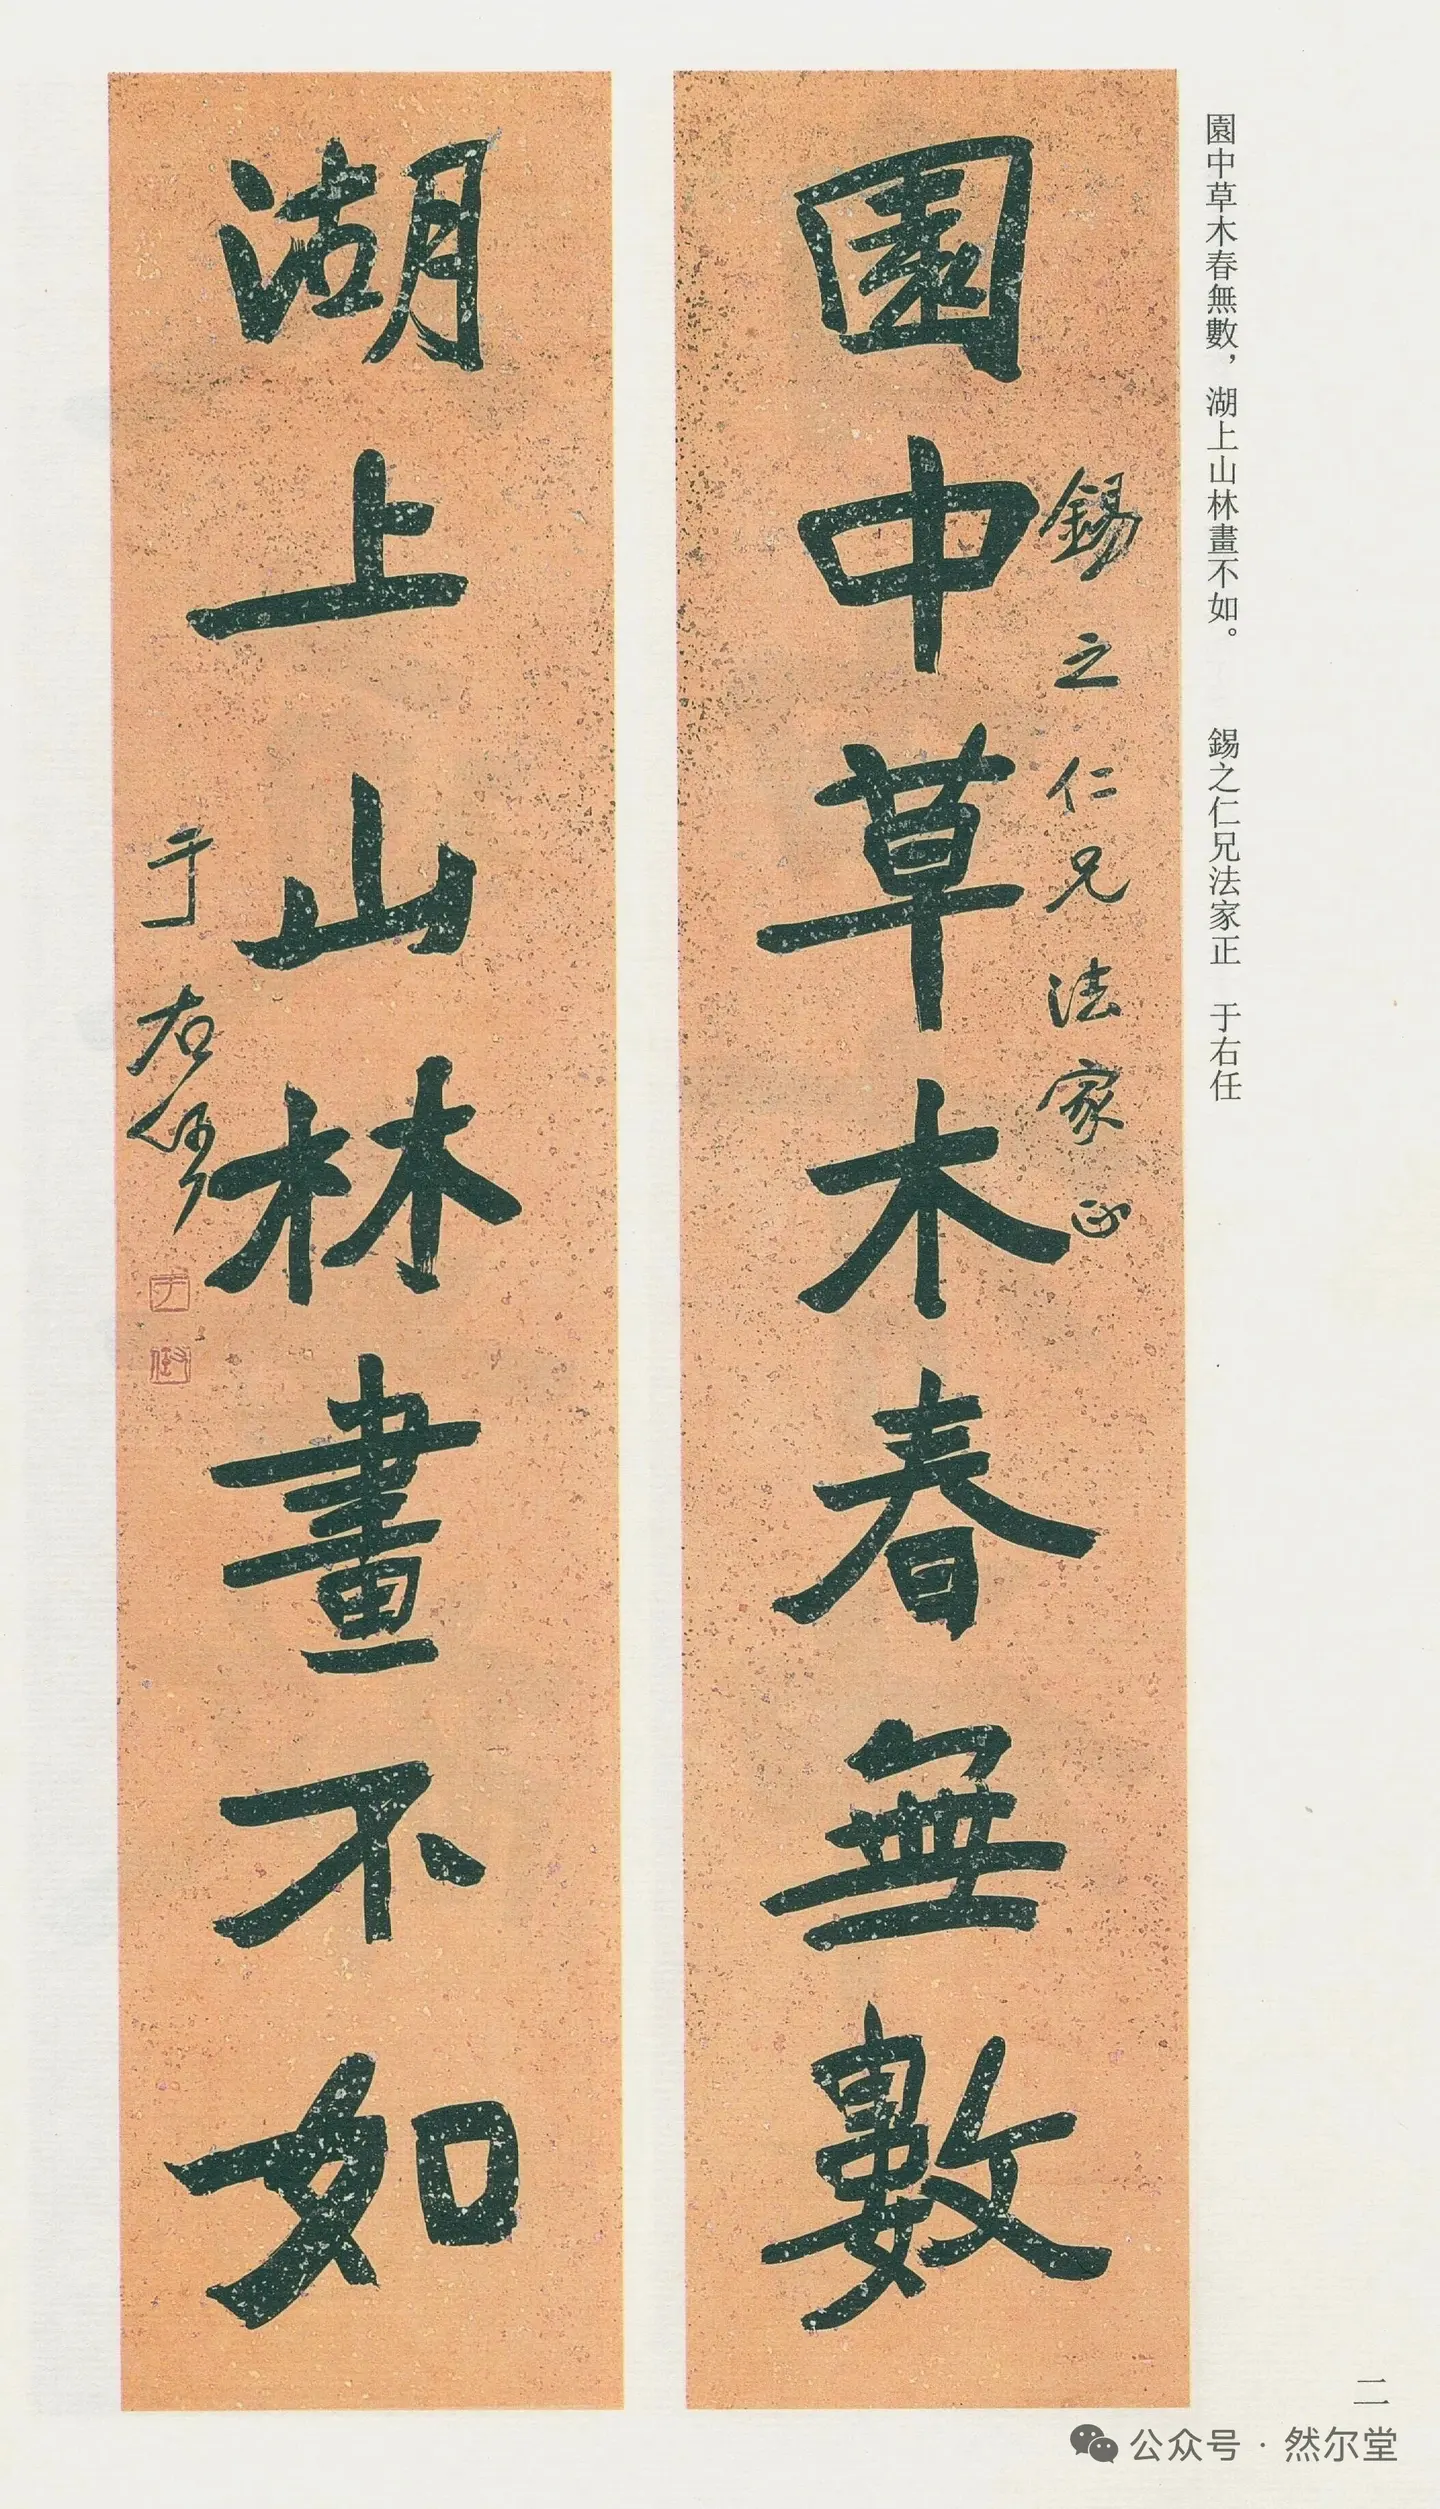 園中草木春無數，湖上山林畫不如。 錫之仁兄法家正 于右任
園中草木春無數
錫之仁兄法家正
湖上山林畫不如
于右任
二
公众号 · 然尔堂